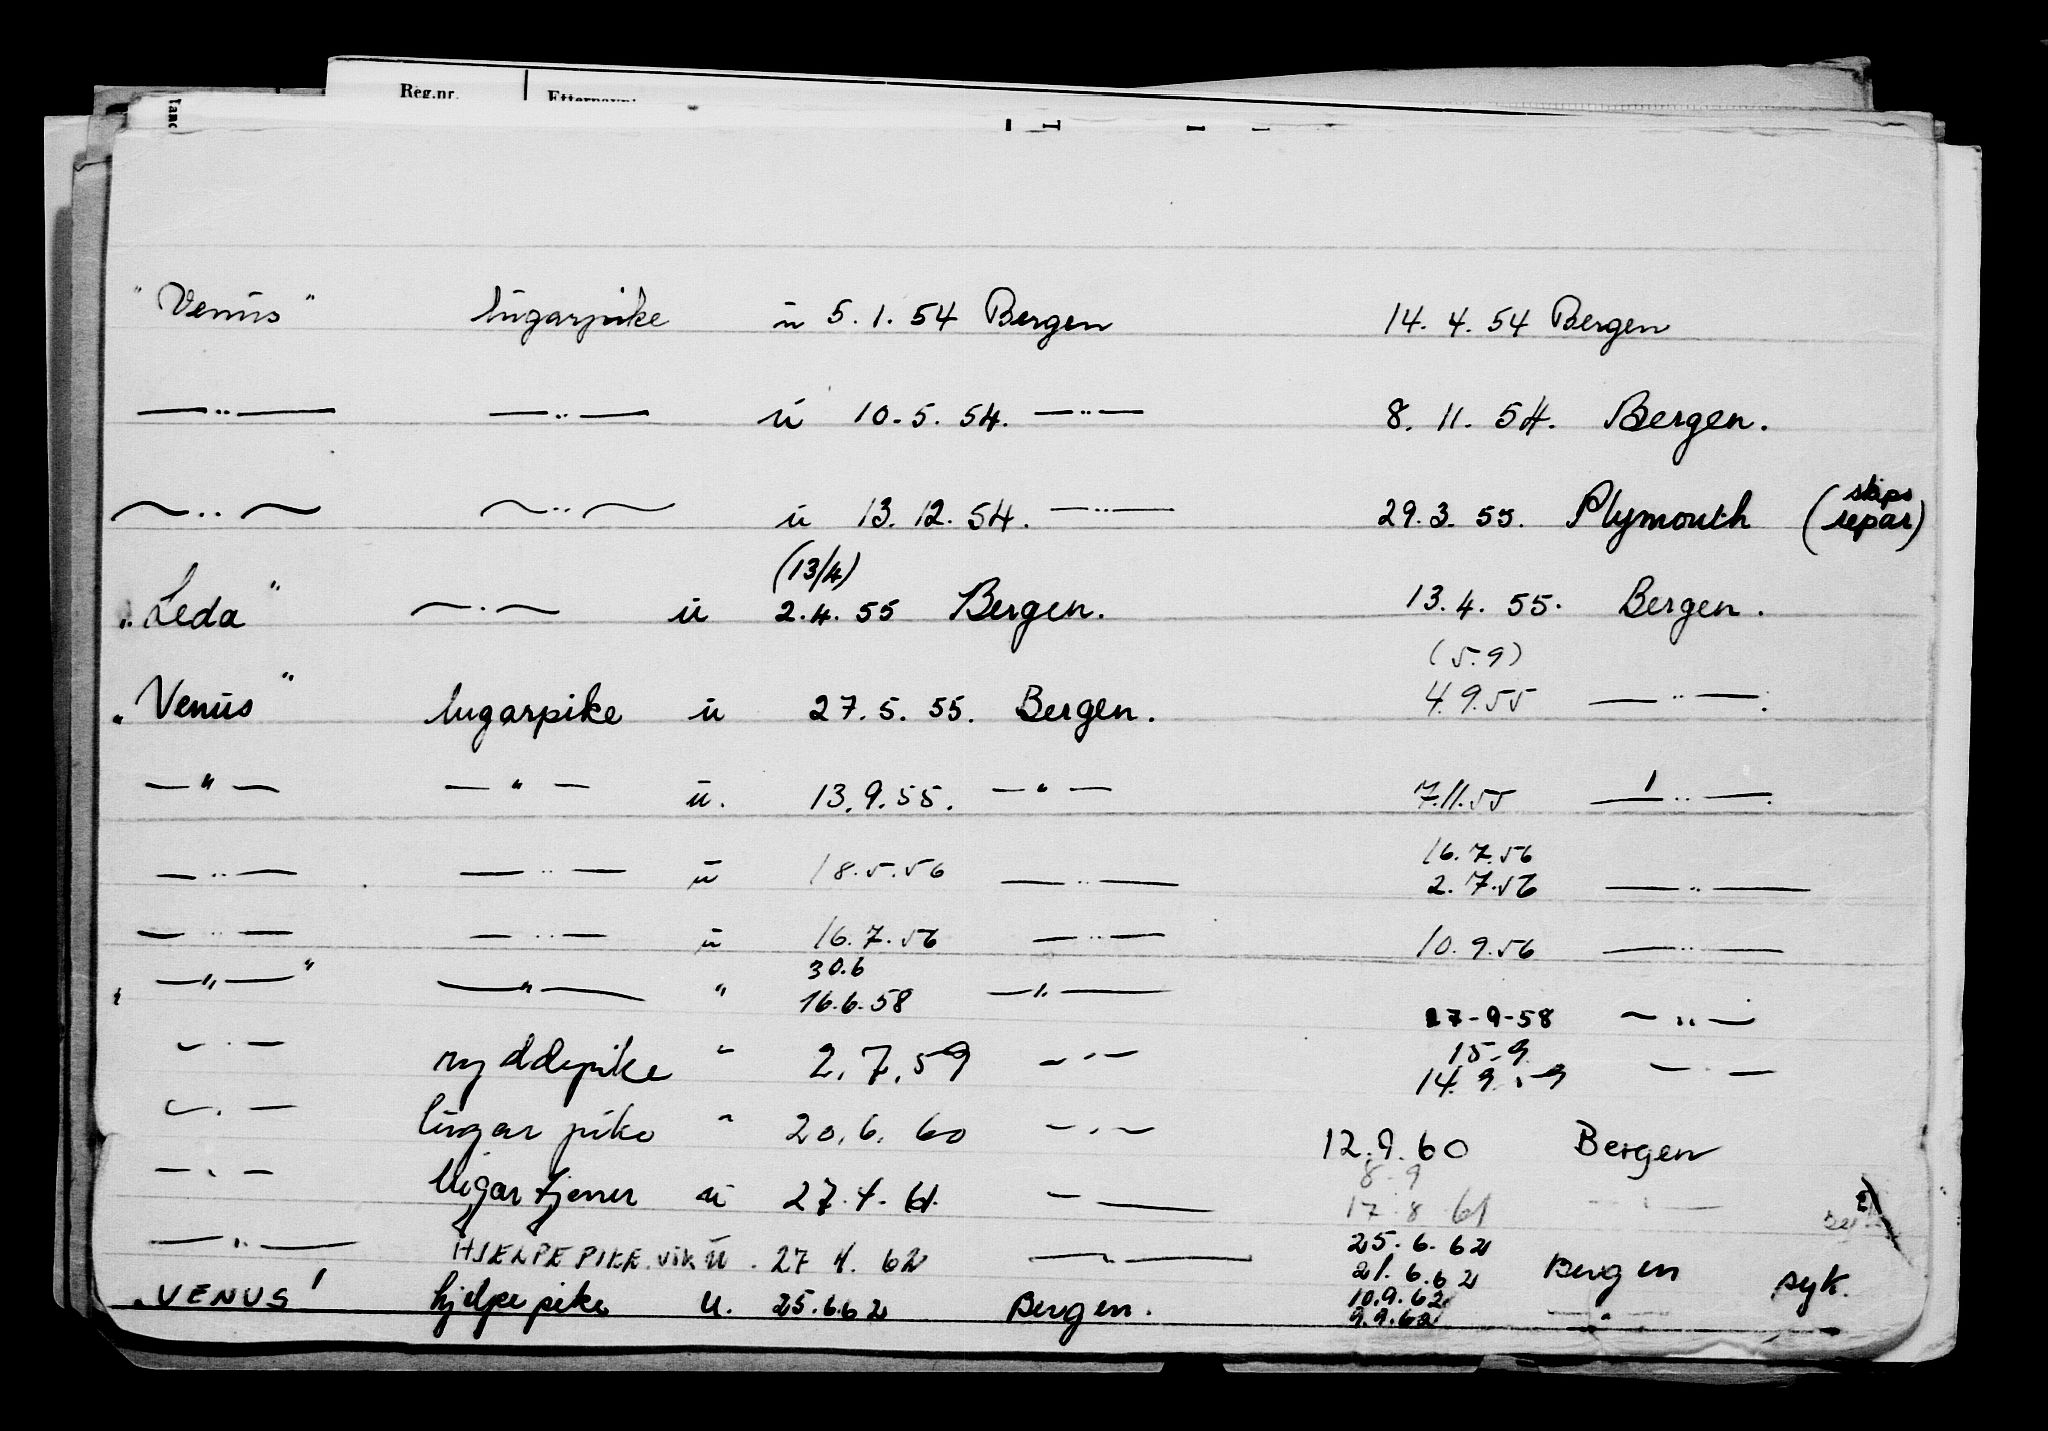 Reg.nr.
"Venus" lugarpike u 5.1.54 Bergen 14.4.54 Bergen
—..— —..— u 10.5.54. —..— 8.11.54. Bergen.
—..— —..— u 13.12.54. —..— 29.3.55. Plymouth (skips repar)
(13/4)
"Leda" —.— u 2.4.55 Bergen. 13.4.55. Bergen.
(5.9)
"Venus" lugarpike u 27.5.55. Bergen. 4.9.55 —..—.
—"— —"— u. 13.9.55. —"— 7.11.55 —..—.
16.7.56
—..— —..— u 18.5.56 —..— 2.7.56 —..—
—..— —..— u 16.7.56 —..— 10.9.56 —..—
30.6
—"—" —"— " 16.6.58 —"— 27-9-58 —..—
15.9
—.— ryddepike " 2.7.59 —.— 14.9.59 —.—
—.— lugarpike " 20.6.60 —.— 12.9.60 Bergen
8-9
—.— lugartjener u 27.4.61. —.— 17.8.61 —.—
25.6.62
—..— HJELPEPIKE.vik u. 27.4.62 —..— 21.6.62 Bergen syk.
10.9.62
"VENUS" hjelpepike u. 25.6.62 Bergen. 9.9.62 —"—